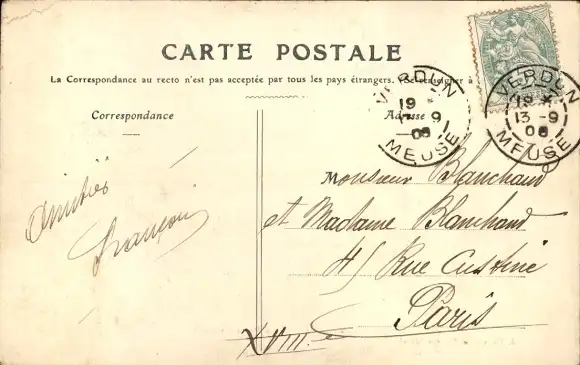 CARTE POSTALE
La Correspondance au recto n'est pas acceptée par tous les pays étrangers. (Se renseigner à
Correspondance
Adresse
VERDUN
19
13 -9
08
MEUSE
VERDUN
19
13 -9
08
MEUSE
Amitiés
François
Monsieur Blanchard
et Madame Blanchard
45 Rue Custine
Paris
XVIII e